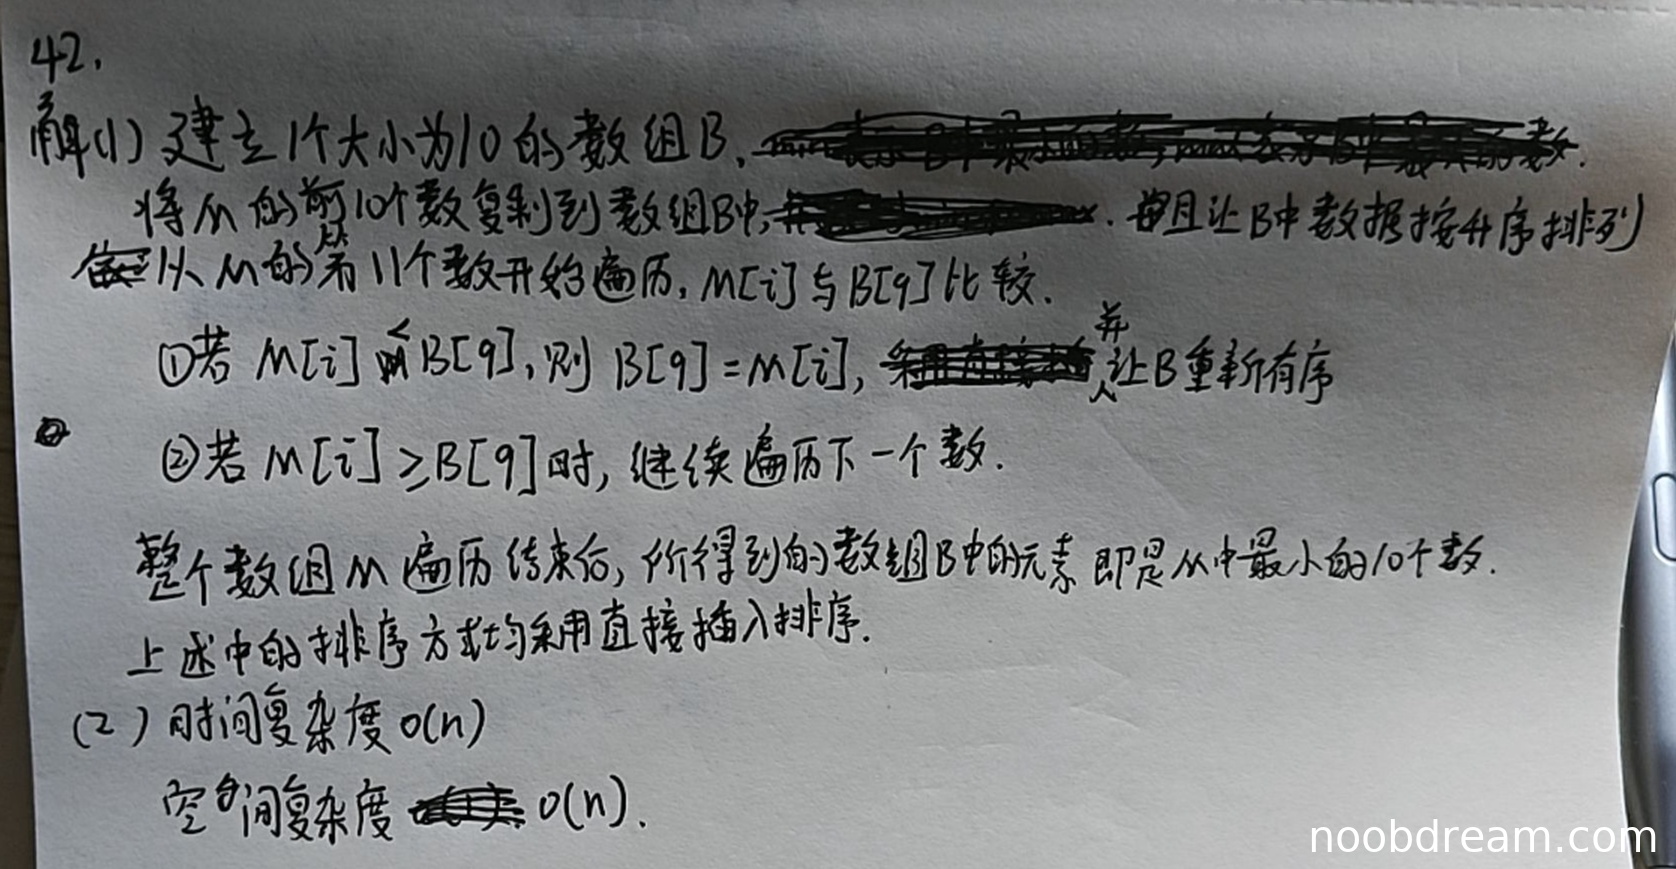 42.
解(1) 建立1个大小为10的数组B.
将M的前10个数复制到数组B中, 且让B中数据按升序排列
从M的第11个数开始遍历, M[i]与B[9]比较.
①若 M[i] < B[9], 则 B[9] = M[i], 并让B重新有序
②若 M[i] ≥ B[9]时, 继续遍历下一个数.
整个数组M遍历结束后, 所得到的数组B中的元素即是M中最小的10个数.
上述中的排序方式均采用直接插入排序.
(2) 时间复杂度 O(n)
空间复杂度 O(n).
noobdream.com